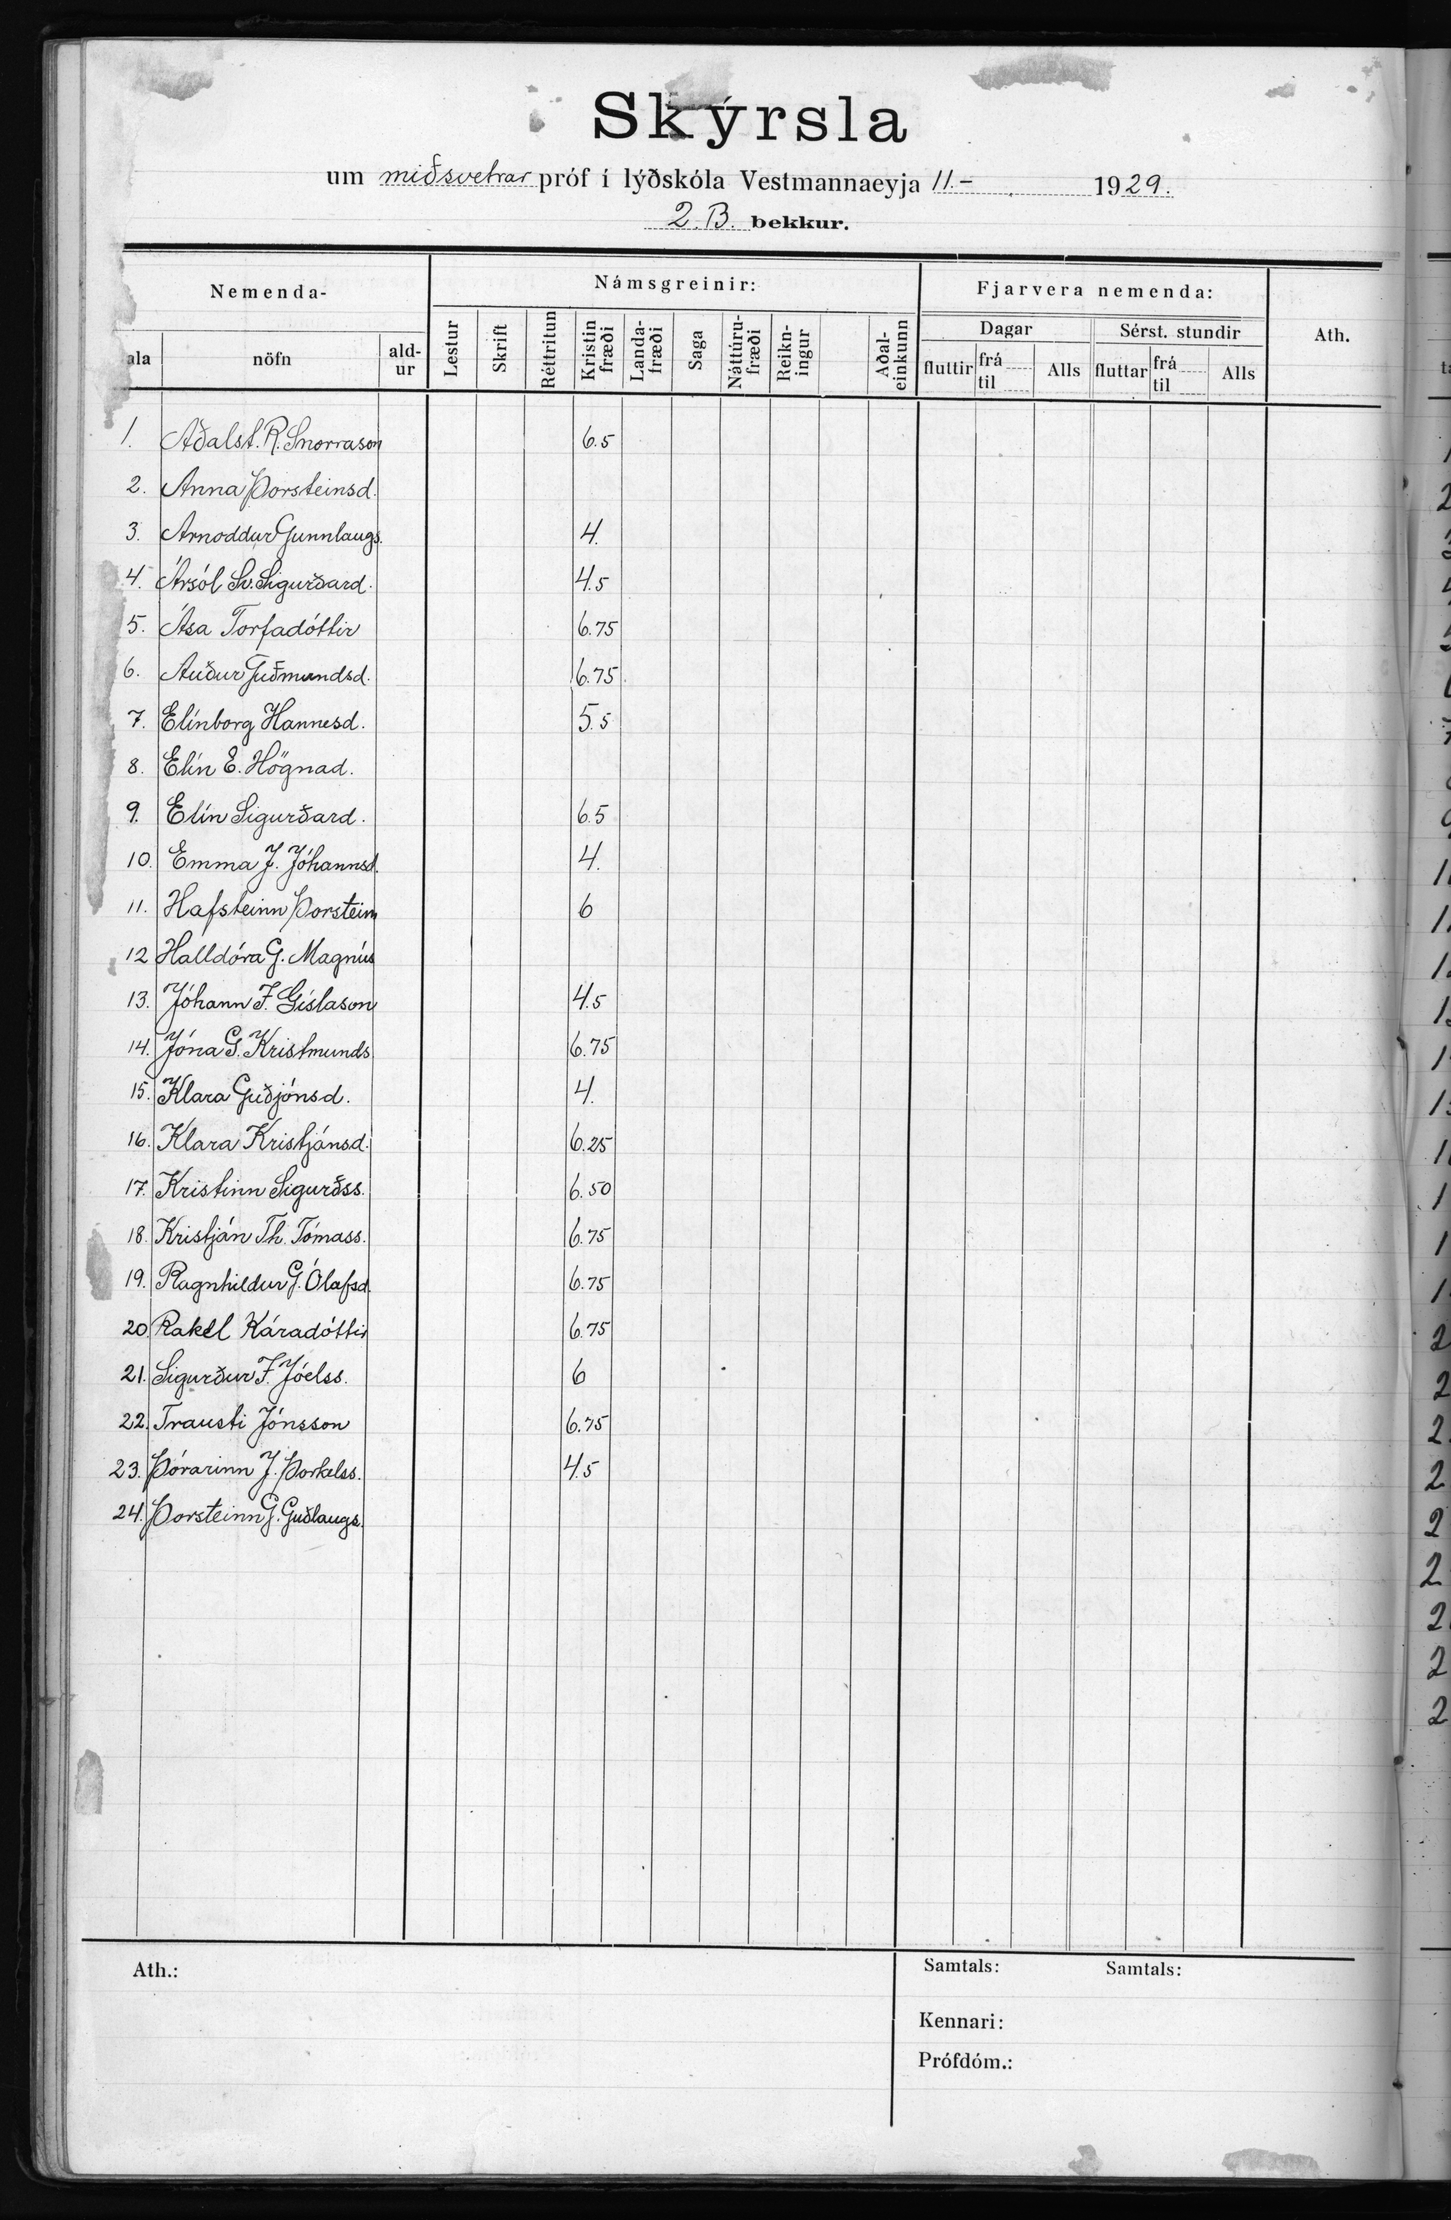 Skýrsla
um miðsvetrar próf í lýðskóla Vestmannaeyja 11.- 1929.
2. B. bekkur.
Nemenda- Námsgreinir: Fjarvera nemenda: Ath.
ala nöfn ald-ur Lestur Skrift Réttritun Kristin fræði Landa-fræði Saga Náttúru-fræði Reikn-ingur Aðal-einkunn Dagar Sérst. stundir
fluttir frá til Alls fluttar frá til Alls
1. Aðalst. R. Snorrason 6.5
2. Anna Þorsteinsd.
3. Arnoddur Gunnlaugs. 4.
4. Ársól Sv. Sigurðard. 4.5
5. Ása Torfadóttir 6.75
6. Auður Guðmundsd. 6.75
7. Elínborg Hannesd. 5.5
8. Elín E. Högnad.
9. Elín Sigurðard. 6.5
10. Emma J. Jóhannsd. 4.
11. Hafsteinn Þorstein 6
12 Halldóra G. Magnús
13. Jóhann F. Gíslason 4.5
14. Jóna G. Kristmunds 6.75
15. Klara Guðjónsd. 4.
16. Klara Kristjánsd. 6.25
17. Kristinn Sigurðss. 6.50
18. Kristján Th. Tómass. 6.75
19. Ragnhildur G. Ólafsd. 6.75
20 Rakel Káradóttir 6.75
21. Sigurður F. Jóelss. 6
22. Trausti Jónsson 6.75
23. Þórarinn J. Þorkelss. 4.5
24. Þorsteinn G. Guðlaugs.
Ath.: Samtals: Samtals:
Kennari:
Prófdóm.: